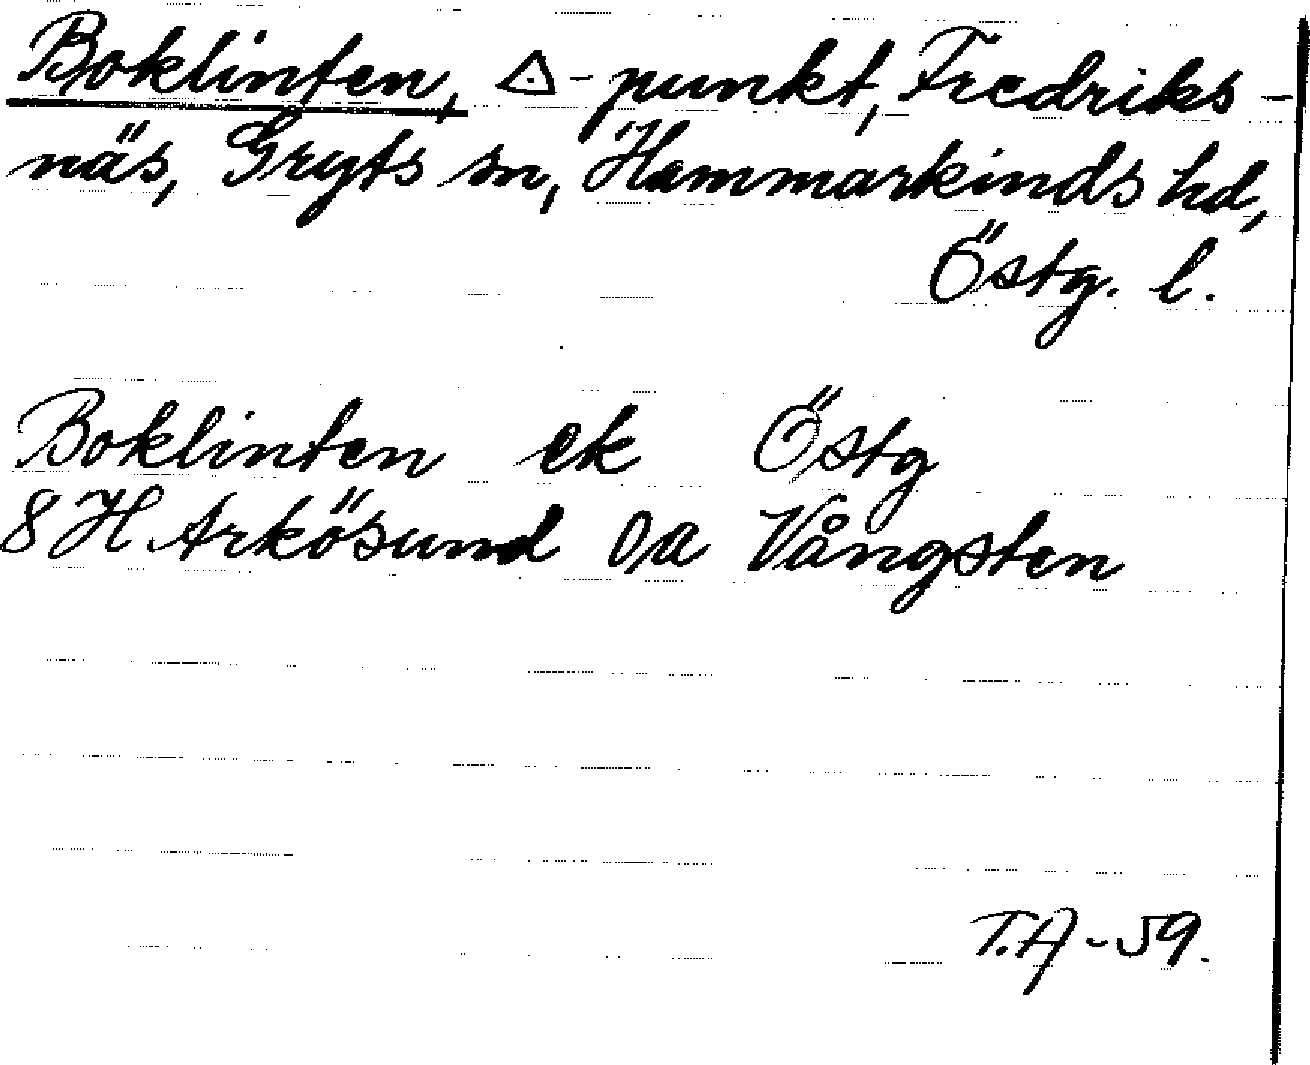 Boklinten, △-punkt, Fredriks-
näs, Gryts sn, Hammarkinds hd,
Östg. l.
Boklinten ek Östg
8H Arkösund Da Vångsten
T.A-59.